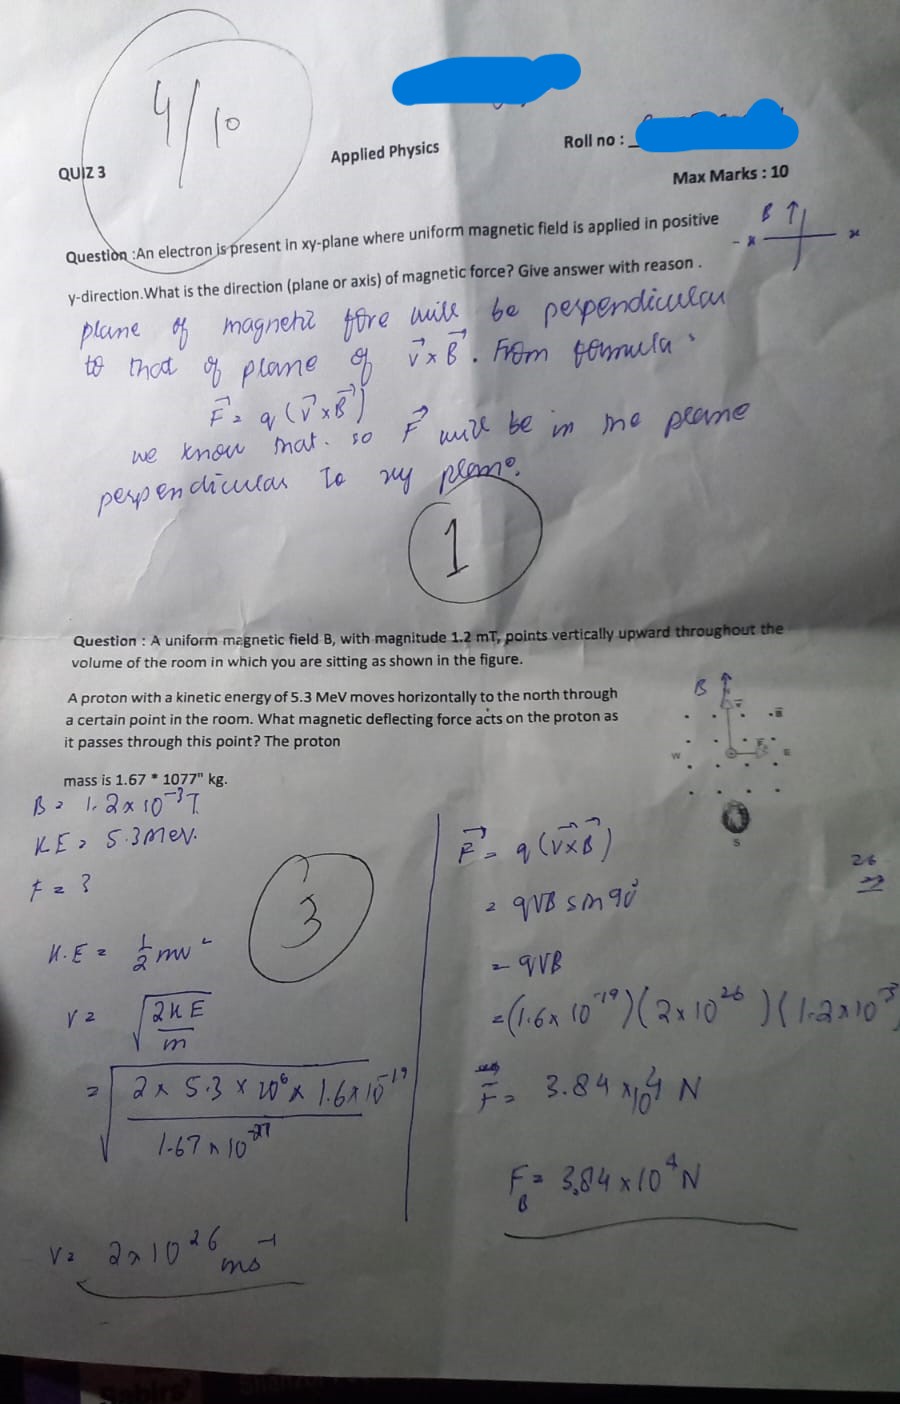 4/10
QUIZ 3
Applied Physics
Roll no :
Max Marks : 10
Question :An electron is present in xy-plane where uniform magnetic field is applied in positive
y-direction.What is the direction (plane or axis) of magnetic force? Give answer with reason .
B
- x
x
plane of magnetic fore will be perpendicular
to that of plane of v⃗ x B⃗. From formula:
F⃗ = q (v⃗ x B⃗)
we know that. so F⃗ will be in the plane
perpendicular to xy plane.
1
Question : A uniform magnetic field B, with magnitude 1.2 mT, points vertically upward throughout the
volume of the room in which you are sitting as shown in the figure.
A proton with a kinetic energy of 5.3 MeV moves horizontally to the north through
a certain point in the room. What magnetic deflecting force acts on the proton as
it passes through this point? The proton
mass is 1.67 * 1077" kg.
B
W
E
S
B = 1.2 x 10⁻³ T
KE = 5.3 Mev.
F = ?
3
K.E = 1/2 mv²
v = √(2KE/m)
= √(2 x 5.3 x 10⁶ x 1.6 x 10⁻¹⁹ / 1.67 x 10⁻²⁷)
V = 2 x 10²⁶ ms⁻¹
F⃗ = q (v⃗xB⃗)
= qVB sin 90°
= qVB
= (1.6 x 10⁻¹⁹) (2 x 10²⁶) (1.2 x 10⁻³
F = 3.84 x 10⁴ N
F_B = 3.84 x 10⁴ N
26